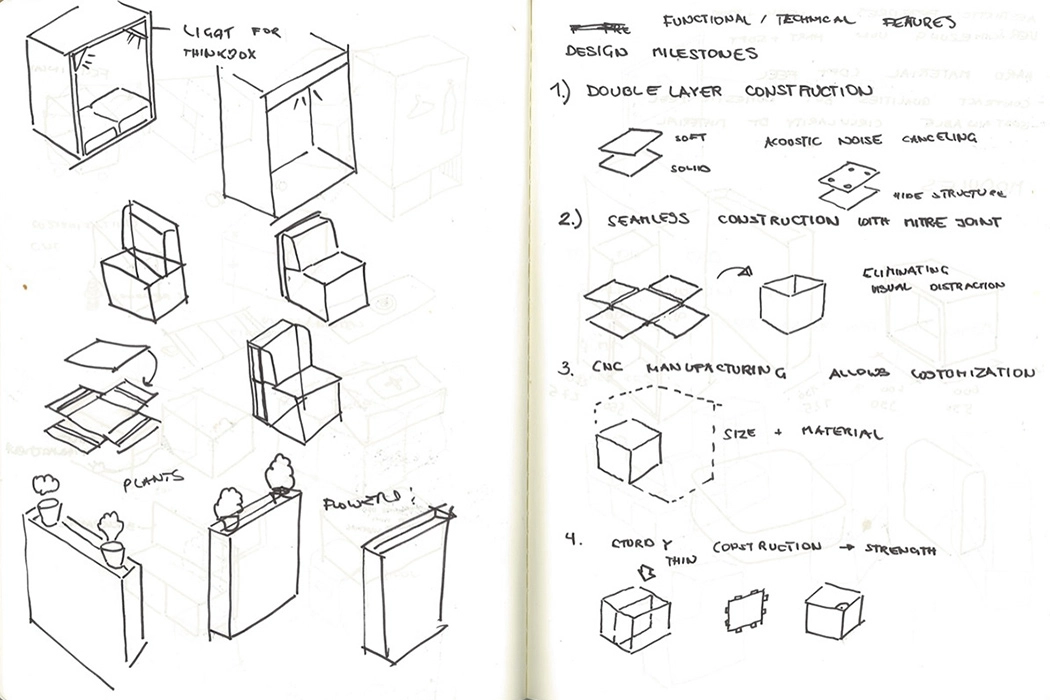 LIGHT FOR
THINKBOX
PLANTS
FUNCTIONAL / TECHNICAL FEATURES
DESIGN MILESTONES
1.) DOUBLE LAYER CONSTRUCTION
SOFT
SOLID
ACOOSTIC NOISE CANCELING
HIDE STRUCTURE
2.) SEAMLESS CONSTRUCTION WITH MITRE JOINT
ELIMINATING
VISUAL DISTRACTION
3. CNC MANUFACTURING ALLOWS COSTOMIZATION
SIZE + MATERIAL
4. STURDY CONSTRUCTION → STRENGTH
THIN